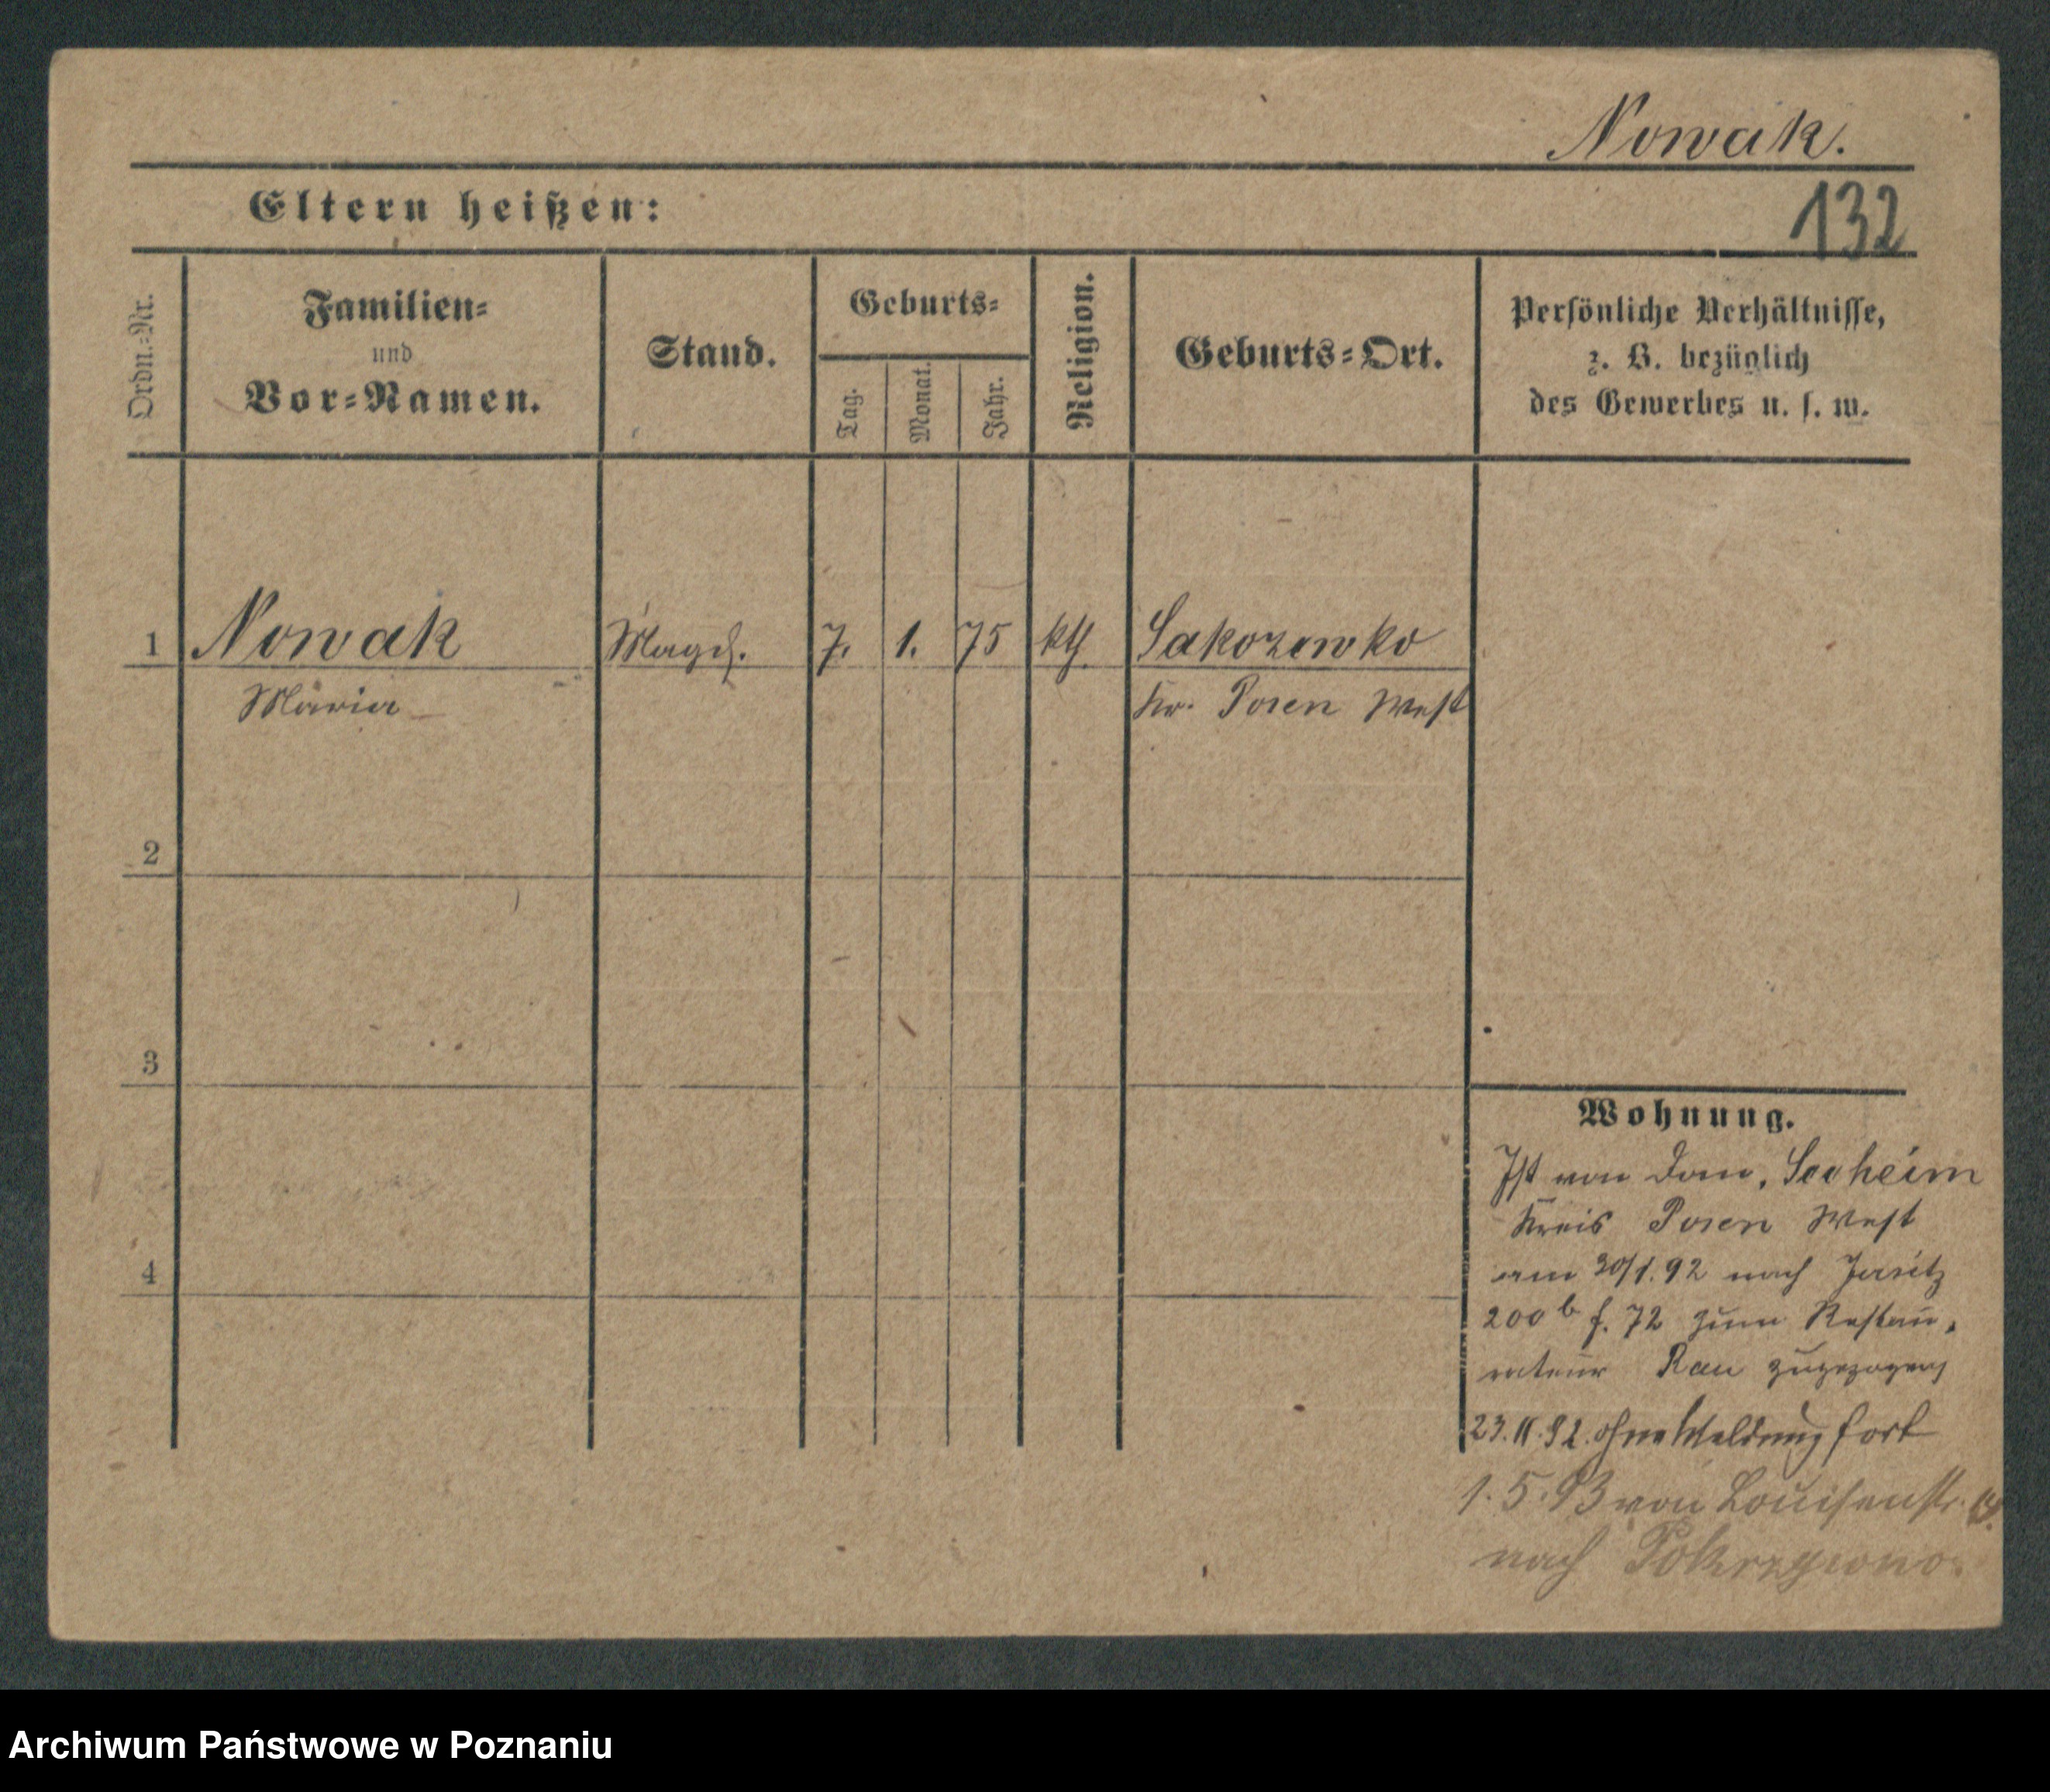 Nowak.
Eltern heißen:
132
Ordn.-Nr.
Familien-
und
Vor-Namen.
Stand.
Geburts-
Tag.
Monat.
Jahr.
Religion.
Geburts-Ort.
Persönliche Verhältnisse,
z. B. bezüglich
des Gewerbes u. s. w.
1 Nowak Magd. 7. 1. 75 kth. Sakozewko
Maria Kr. Posen West
2
3
4
Wohnung.
Ist von Dom. Seeheim
Kreis Posen West
am 30/1. 92 nach Jersitz
200b f. 72 zum Restau-
rateur Rau zugezogen
23.11.92. ohne Meldung fort
1.5.93 von Louisenstr.
nach
Archiwum Państwowe w Poznaniu